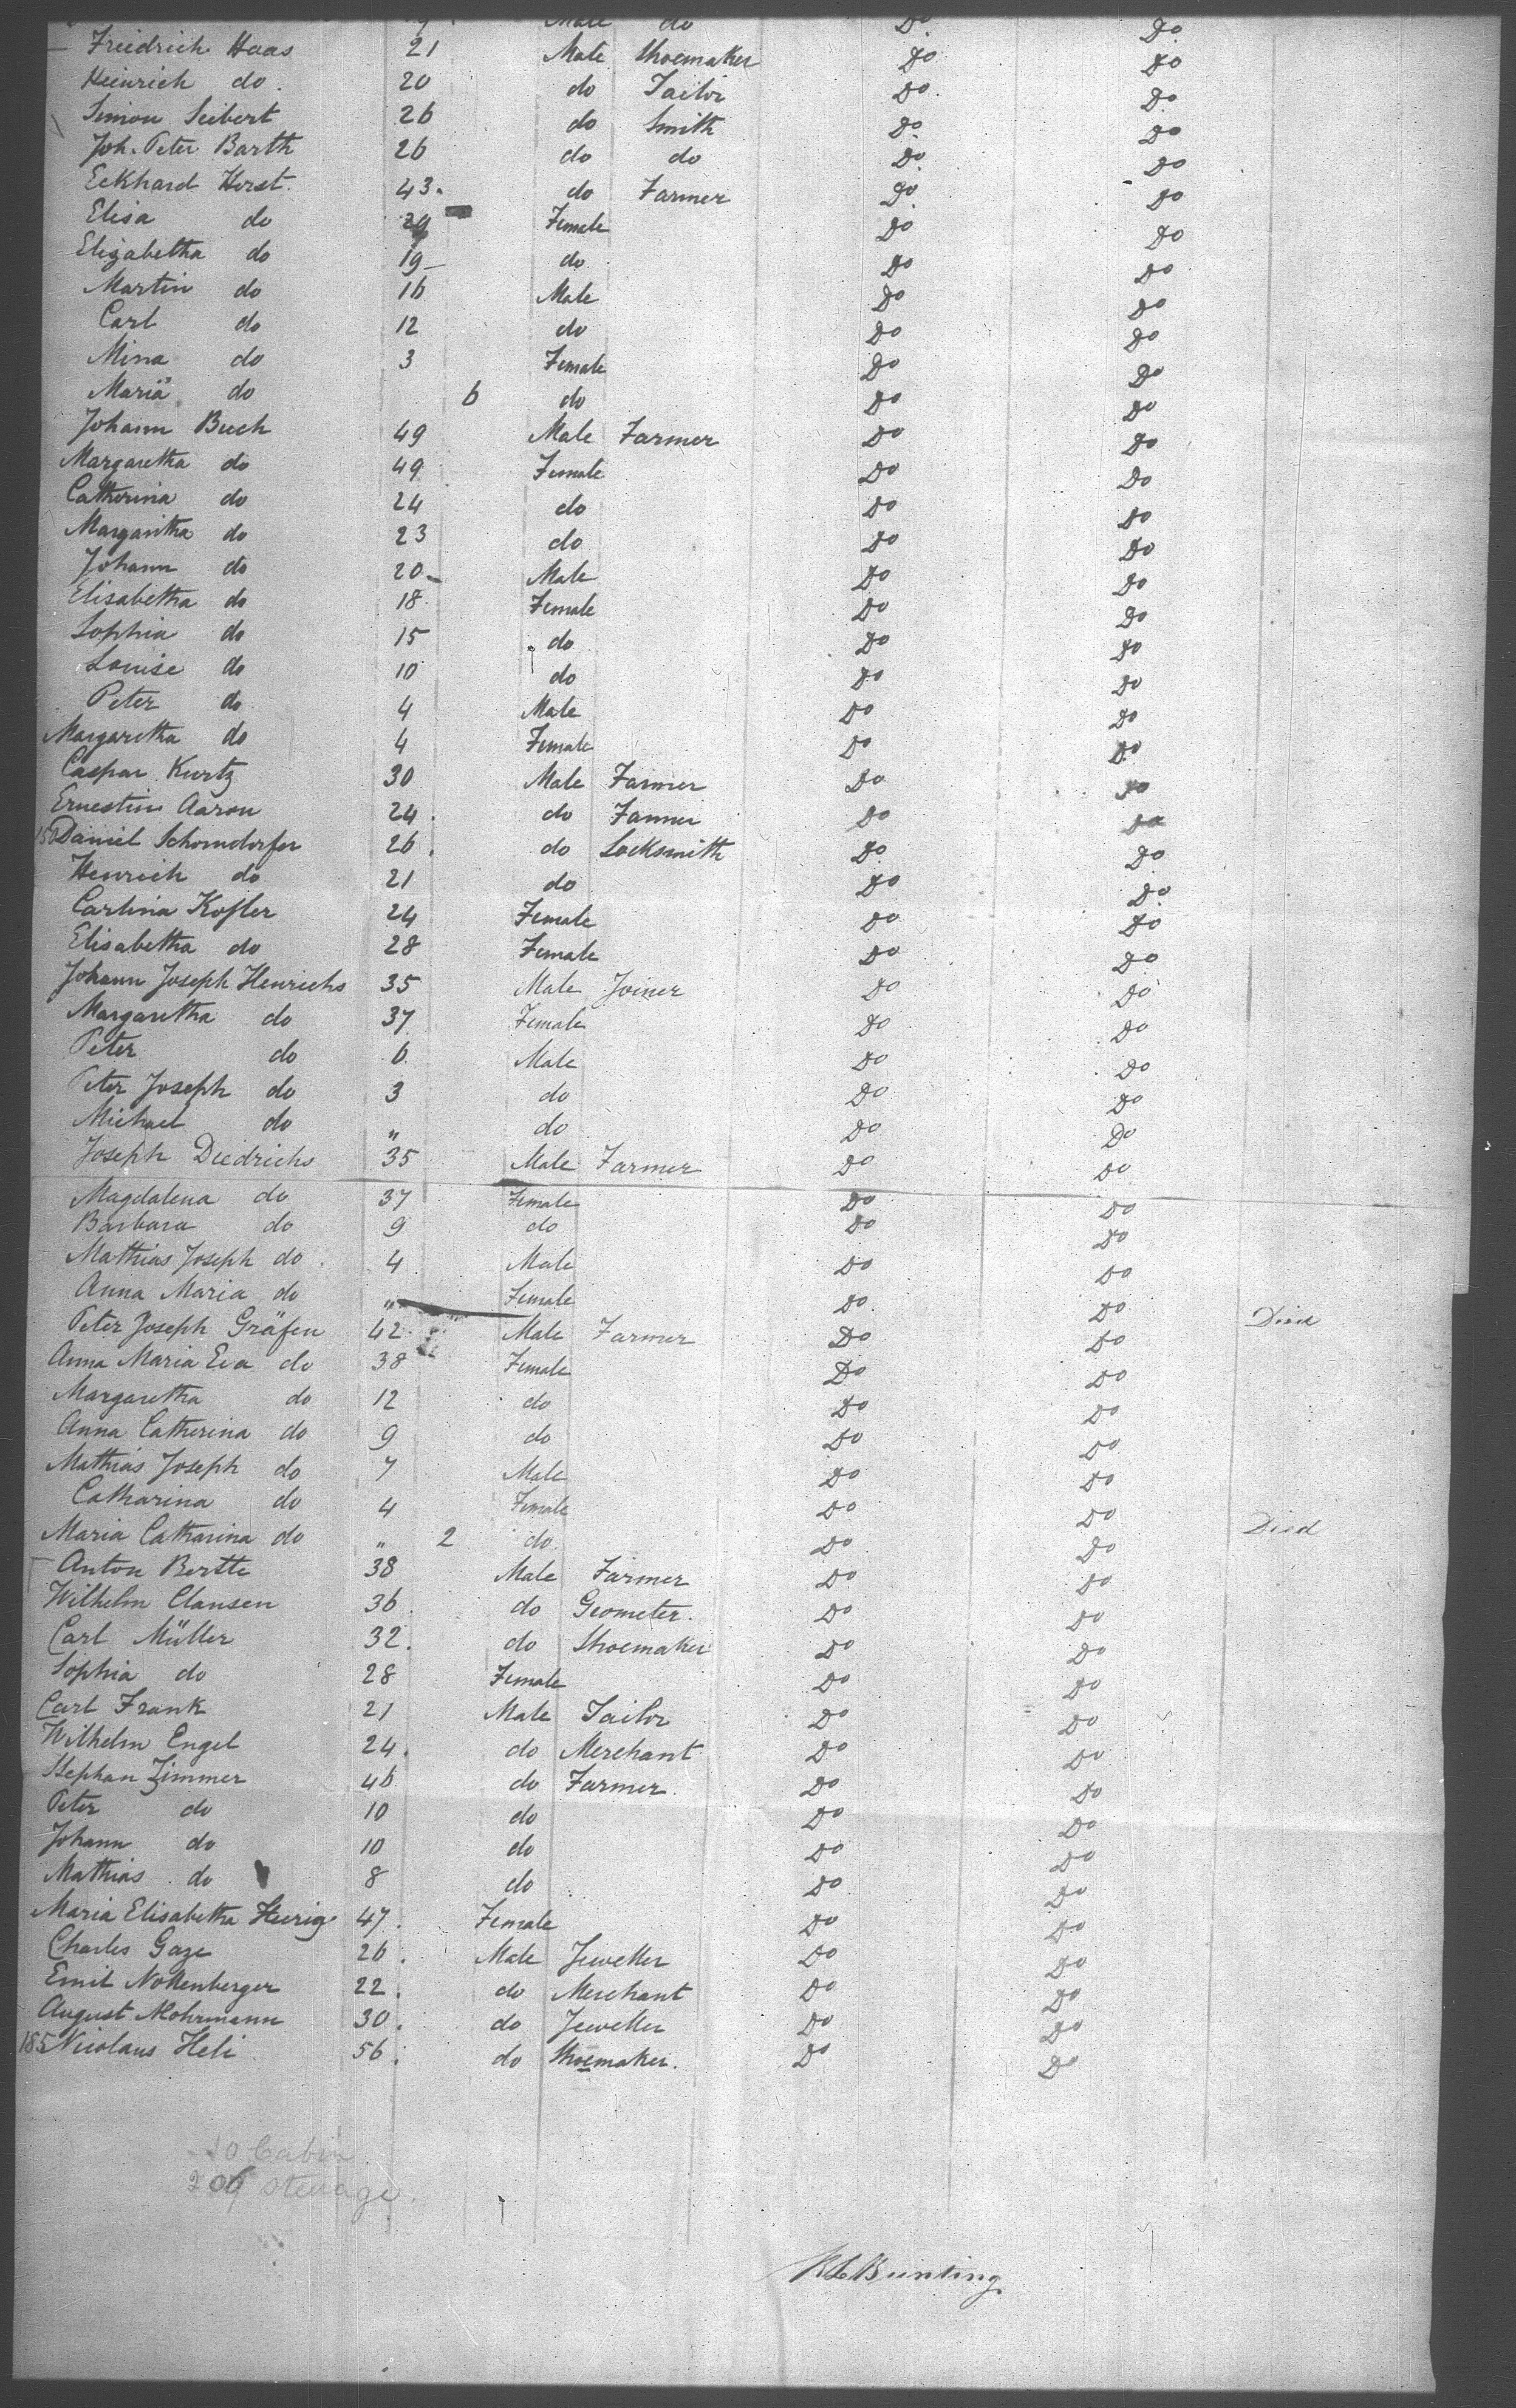 Male do Do Do
Friedrich Haas 21 Male Shoemaker Do Do
Heinrich do 20 do Tailor Do Do
Simon Seibert 26 do Smith Do Do
Joh. Peter Barth 26 do do Do Do
Eckhard Horst 43 do Farmer Do Do
Elisa do 29 Female Do Do
Elizabetha do 19 do Do Do
Martin do 16 Male Do Do
Carl do 12 do Do Do
Mina do 3 Female Do Do
Maria do 6 do Do Do
Johann Buch 49 Male Farmer Do Do
Margaretha do 49 Female Do Do
Catherina do 24 do Do Do
Margaritha do 23 do Do Do
Johann do 20 Male Do Do
Elisabetha do 18 Female Do Do
Sophia do 15 do Do Do
Louise do 10 do Do Do
Peter do 4 Male Do Do
Margaretha do 4 Female Do Do
Caspar Kurtz 30 Male Farmer Do Do
Ernestine Aaron 24 do Do Do
150 Daniel Schorndorfer 26 do Locksmith Do Do
Henrich do 21 do Do Do
Carlina Kofler 24 Female Do Do
Elisabetha do 28 Female Do Do
Johann Joseph Henrichs 35 Male Joiner Do Do
Margaretha do 37 Female Do Do
Peter do 6 Male Do Do
Peter Joseph do 3 do Do Do
Michael do " do Do Do
Joseph Diedrichs 35 Male Farmer Do Do
Magdalena do 37 Female Do Do
Barbara do 9 do Do Do
Mathias Joseph do 4 Male Do Do
Anna Maria do " Female Do Do Died
Peter Joseph Gräfen 42 Male Farmer Do Do
Anna Maria Eva do 38 Female Do Do
Margaretha do 12 do Do Do
Anna Catherina do 9 do Do Do
Mathias Joseph do 7 Male Do Do
Catharina do 4 Female Do Do
Maria Catharina do " 2 do Do Do Died
Anton Bertte 38 Male Farmer Do Do
Wilhelm Clausen 36 do Geometer Do Do
Carl Müller 32 do Shoemaker Do Do
Sophia do 28 Female Do Do
Carl Frank 21 Male Tailor Do Do
Wilhelm Engel 24 do Merchant Do Do
Stephan Zimmer 46 do Farmer Do Do
Peter do 10 do Do Do
Johann do 10 do Do Do
Mathias do 8 do Do Do
Maria Elisabetha 47 Female Do Do
Charles Gaze 26 Male Jeweller Do Do
Emil Nottenberger 22 do Merchant Do Do
August Mohrmann 30 do Jeweller Do Do
185 Nicolaus Heli 56 do Shoemaker. Do Do
10 Cabin
Steerage
Bunting